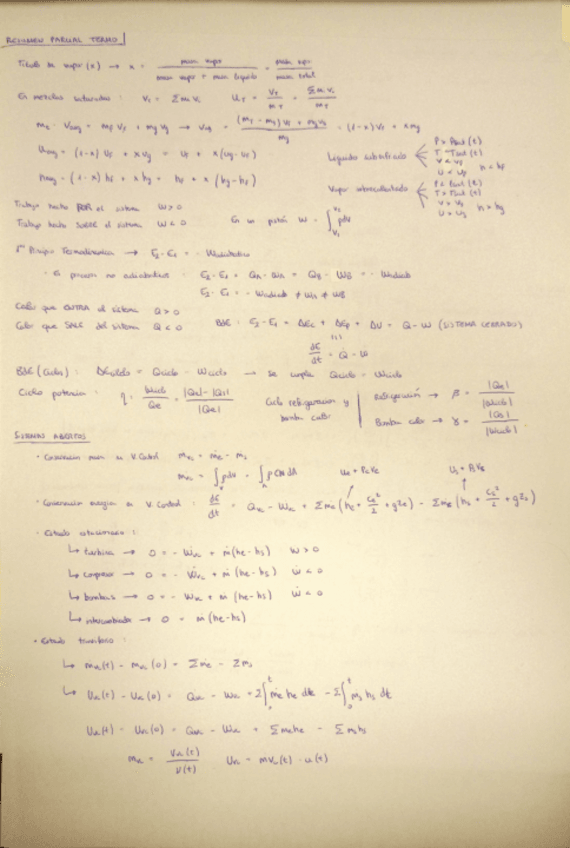 RESUMEN PARCIAL TERMO
Título de vapor (x) → x = masa vapor / (masa vapor + masa líquido) = masa vapor / masa total
En mezclas saturadas : V_T = Σ m v_i   v_T = V_T / m_T = Σ m v_i / m_T
m_T · v_avg = m_f v_f + m_g v_g → v_avg = ((m_T - m_g) v_f + m_g v_g) / m_g = (1-x) v_f + x v_g
u_avg = (1-x) u_f + x u_g = u_f + x (u_g - u_f)
h_avg = (1-x) h_f + x h_g = h_f + x (h_g - h_f)
Líquido subenfriado
P > Psat (t)
T < Tsat (t)
v < v_f
u < u_f   h < h_f
Vapor sobrecalentado
P < Psat (t)
T > Tsat (t)
v > v_g
u > u_g   h > h_g
Trabajo hecho POR el sistema W > 0
Trabajo hecho SOBRE el sistema W < 0   En un pistón W = ∫_{V1}^{V2} p dV
1er Principio Termodinámica → E2 - E1 = - Wadiabático
· En procesos no adiabáticos : E2 - E1 = QA - WA = QB - WB = - Wadiab
E2 - E1 = - Wadiab ≠ WA ≠ WB
Calor que ENTRA al sistema Q > 0
Calor que SALE del sistema Q < 0   BDE : E2 - E1 = ΔEc + ΔEp + ΔU = Q - W (SISTEMA CERRADO)
dE/dt = Q̇ - Ẇ
BDE (Ciclos) : ΔEciclo = Qciclo - Wciclo → se cumple Qciclo = Wciclo
Ciclo potencia : η = Wciclo / Qe = (|Qe| - |Qs|) / |Qe|
Ciclo refrigeración y bomba calor
Refrigeración → β = |Qe| / |Wciclo|
Bomba calor → γ = |Qs| / |Wciclo|
SISTEMAS ABIERTOS
· Conservación masa en V. Control ṁvc = ṁe - ṁs
mvc = ∫_V ρ dV = ∫_A ρ Cn dA   ue + Pe ve   us + Ps vs
· Conservación energía en V. Control : dE/dt = Q̇vc - Ẇvc + Σ ṁe (he + Ce²/2 + g ze) - Σ ṁs (hs + Cs²/2 + g zs)
· Estado estacionario :
↳ turbina → 0 = - Ẇvc + ṁ (he - hs)   Ẇ > 0
↳ compresor → 0 = - Ẇvc + ṁ (he - hs)   Ẇ < 0
↳ bombas → 0 = - Ẇvc + ṁ (he - hs)   Ẇ < 0
↳ intercambiador → 0 = ṁ (he - hs)
· Estado transitorio :
↳ mvc(t) - mvc(0) = Σ me - Σ ms
↳ Uvc(t) - Uvc(0) = Qvc - Wvc + Σ ∫_0^t ṁe he dt - Σ ∫_0^t ṁs hs dt
Uvc(t) - Uvc(0) = Qvc - Wvc + Σ me he - Σ ms hs
mvc = Vvc(t) / v(t)   Uvc = mvc(t) · u(t)